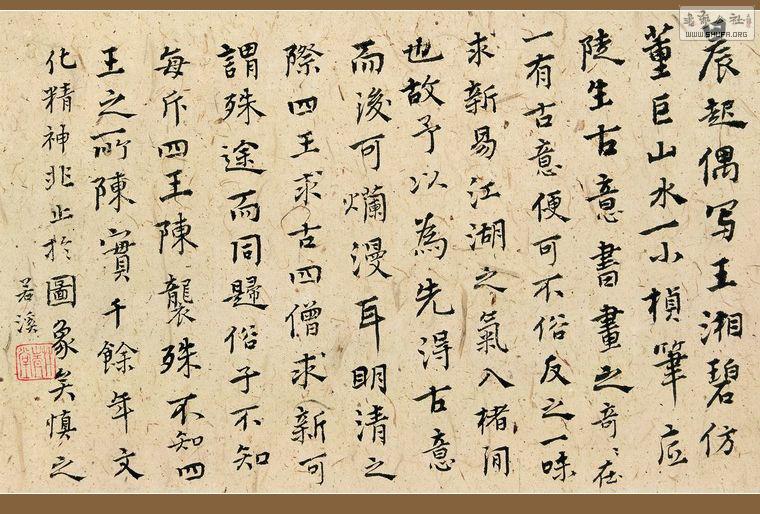 晨起偶写王湘碧仿
董巨山水一小楨筆底
陡生古意書畫之奇々在
一有古意便可不俗反之一味
求新易江湖之氣入楮間
也故予以為先得古意
而後可爛漫耳明清之
際四王求古四僧求新可
謂殊途而同歸俗子不知
每斥四王陳襲殊不知四
王之所陳實千餘年文
化精神非止於圖象矣慎之
若溪
WWW.SHUFA.ORG